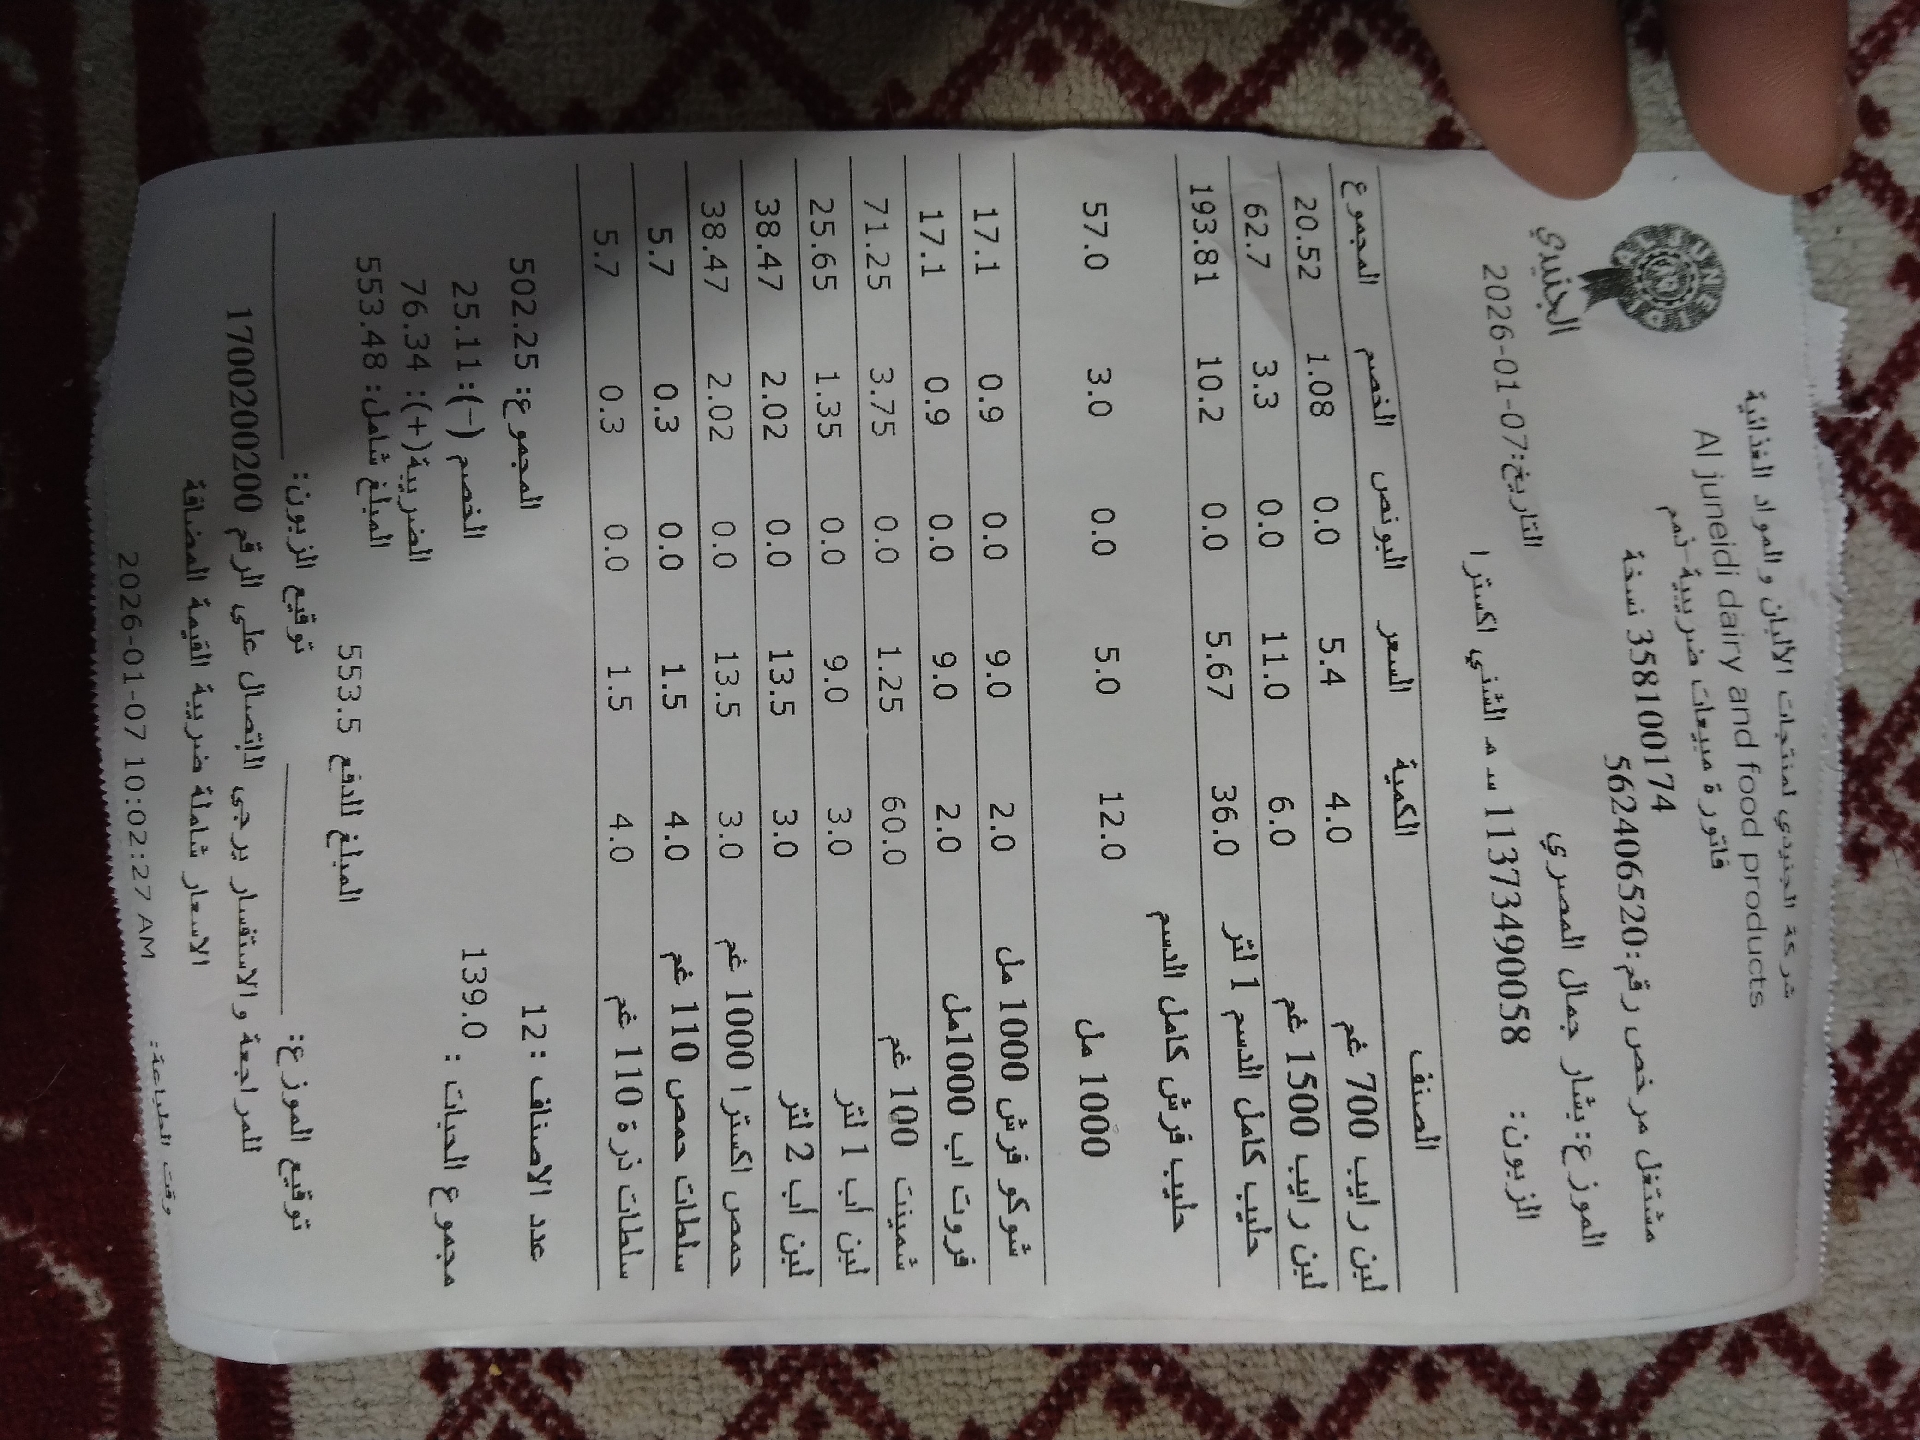 شركة الجنيدي لمنتجات الألبان والمواد الغذائية
Al juneidi dairy and food products
فاتورة مبيعات ضريبية-ذمم
358100174 نسخة
مشتغل مرخص رقم:562406520
الموزع: بشار جمال المصري
الجنيدي
الزبون: 113734900058 سد مد الشني اكسترا
التاريخ:2026-01-07
الصنف الكمية السعر البونص الخصم المجموع
لبن رايب 700 غم 4.0 5.4 0.0 1.08 20.52
لبن رايب 1500 غم 6.0 11.0 0.0 3.3 62.7
حليب كامل الدسم 1 لتر 36.0 5.67 0.0 10.2 193.81
حليب فرش كامل الدسم
1000 مل 12.0 5.0 0.0 3.0 57.0
شوكو فرش 1000 مل 2.0 9.0 0.0 0.9 17.1
فروت اب 1000مل 2.0 9.0 0.0 0.9 17.1
شمينت 100 غم 60.0 1.25 0.0 3.75 71.25
لبن أب 1 لتر 3.0 9.0 0.0 1.35 25.65
لبن أب 2 لتر 3.0 13.5 0.0 2.02 38.47
حمص اكسترا 1000 غم 3.0 13.5 0.0 2.02 38.47
سلطات حمص 110 غم 4.0 1.5 0.0 0.3 5.7
سلطات ذرة 110 غم 4.0 1.5 0.0 0.3 5.7
عدد الاصناف :12 المجموع: 502.25
مجموع الحبات : 139.0 الخصم (-): 25.11
الضريبة(+): 76.34
المبلغ شامل: 553.48
المبلغ للدفع 553.5
توقيع الموزع: توقيع الزبون:
للمراجعة والاستفسار يرجى الاتصال على الرقم 1700200200
الاسعار شاملة ضريبة القيمة المضافة
وقت الطباعة: 2026-01-07 10:02:27 AM